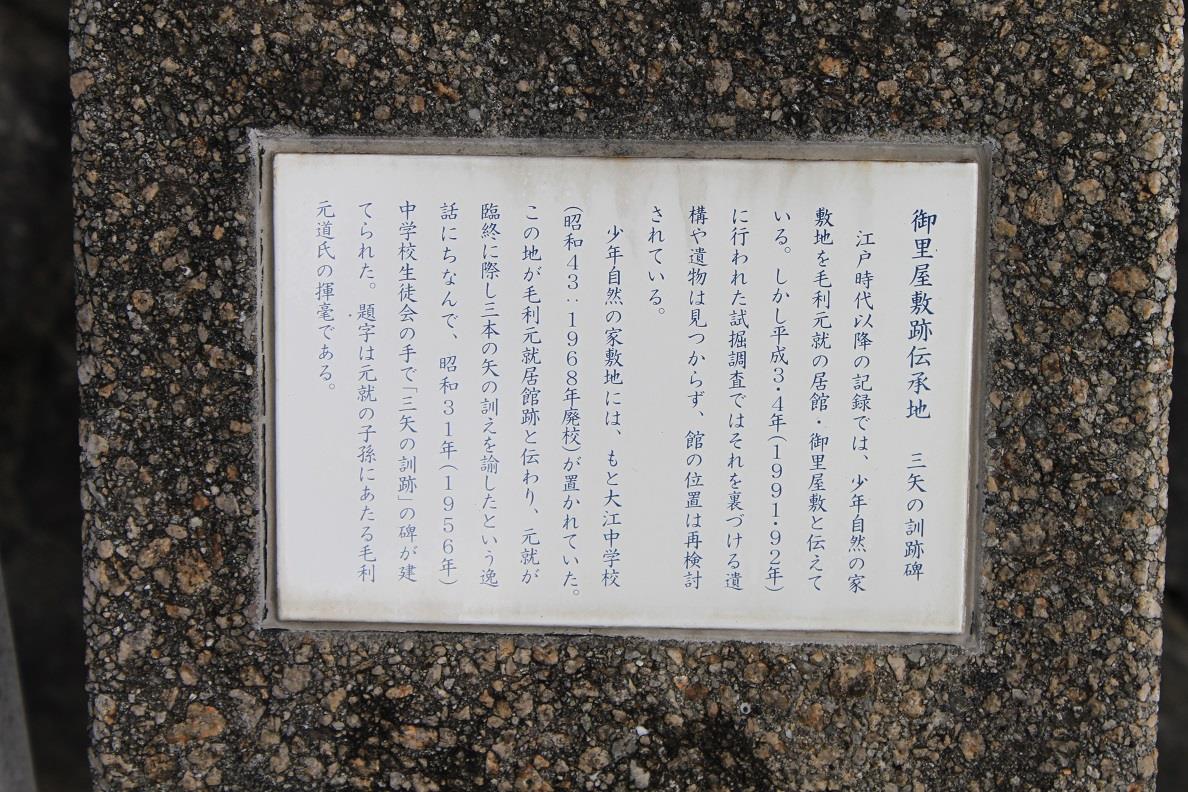 御里屋敷跡伝承地　三矢の訓跡碑
江戸時代以降の記録では、少年自然の家
敷地を毛利元就の居館・御里屋敷と伝えて
いる。しかし平成3・4年(1991・92年)
に行われた試掘調査ではそれを裏づける遺
構や遺物は見つからず、館の位置は再検討
されている。
少年自然の家敷地には、もと大江中学校
(昭和43:1968年廃校)が置かれていた。
この地が毛利元就居館跡と伝わり、元就が
臨終に際し三本の矢の訓えを諭したという逸
話にちなんで、昭和31年(1956年)
中学校生徒会の手で「三矢の訓跡」の碑が建
てられた。題字は元就の子孫にあたる毛利
元道氏の揮毫である。